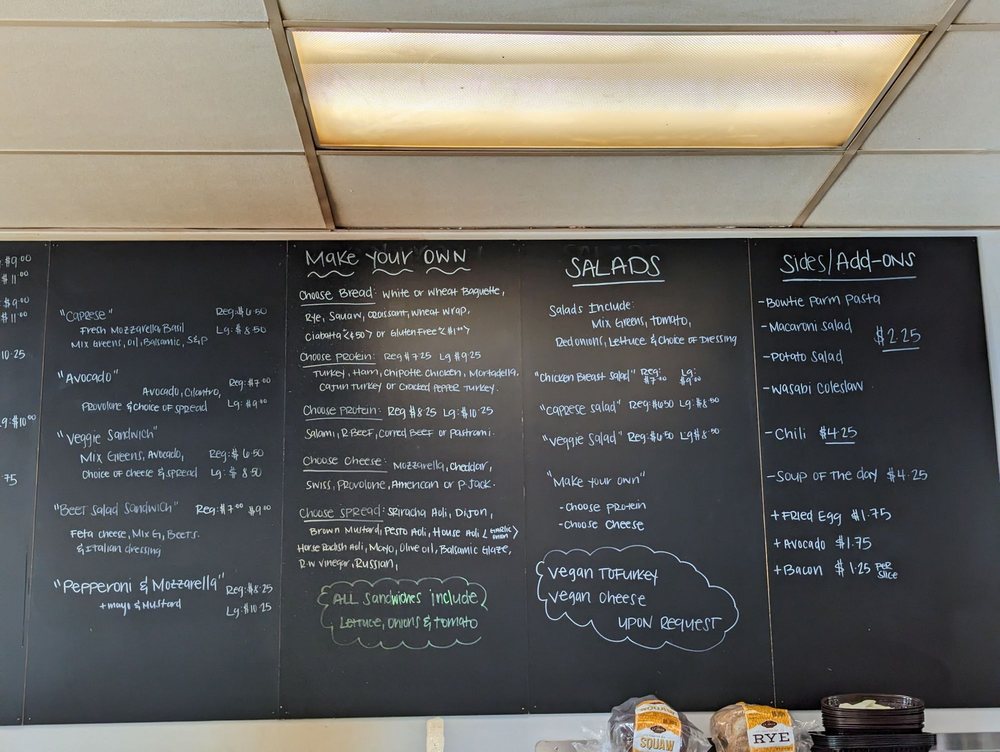 : $9.00
$11.00
: $9.00
$11.00
10.25
g: $10.00
75
"Caprese" Reg: $6.50
Fresh Mozzarella, Basil Lg: $8.50
Mix Greens, oil, Balsamic, S&P
"Avocado" Reg: $7.00
Avocado, Cilantro,
Provolone & choice of spread Lg: $9.00
"Veggie Sandwich"
Mix Greens, Avocado, Reg: $6.50
Choice of cheese & spread Lg: $8.50
"Beet Salad Sandwich" Reg: $7.00 $9.00
Feta cheese, Mix G, Beets.
& Italian dressing
"Pepperoni & Mozzarella" Reg: $8.25
+mayo & Mustard Lg: $10.25
Make Your Own
Choose Bread: White or Wheat Baguette,
Rye, Squaw, Croissant, Wheat Wrap,
Ciabatta <.50> or Gluten Free <$1.00>
Choose Protein: Reg $7.25 Lg $9.25
Turkey, Ham, Chipotle Chicken, Mortadella,
Cajun Turkey or Cracked Pepper Turkey.
Choose Protein: Reg $8.25 Lg: $10.25
Salami, R.Beef, Corned Beef or Pastrami.
Choose Cheese: Mozzarella, Cheddar,
Swiss, Provolone, American or P.Jack.
Choose Spread: Sriracha Aoli, Dijon,
Brown Mustard, Pesto Aoli, House Aoli <garlic onion>
Horse Radish Aoli, Mayo, Olive oil, Balsamic Glaze,
R.W Vinegar, Russian,
ALL Sandwiches include
Lettuce, Onions & Tomato
SALADS
Salads Include:
Mix Greens, Tomato,
Red onions, Lettuce & Choice of Dressing
"Chicken Breast Salad" Reg: $7.00 Lg: $9.00
"Caprese Salad" Reg $6.50 Lg: $8.50
"Veggie Salad" Reg $6.50 Lg $8.50
"Make your own"
- Choose protein
- Choose Cheese
Vegan Tofurkey
Vegan Cheese
UPON REQUEST
Sides/Add-ONS
- Bowtie Parm Pasta
- Macaroni Salad
$2.25
- Potato Salad
- Wasabi Coleslaw
- Chili $4.25
- Soup of the day $4.25
+ Fried Egg $1.75
+ Avocado $1.75
+ Bacon $1.25 PER SLICE
SQUAW
RYE